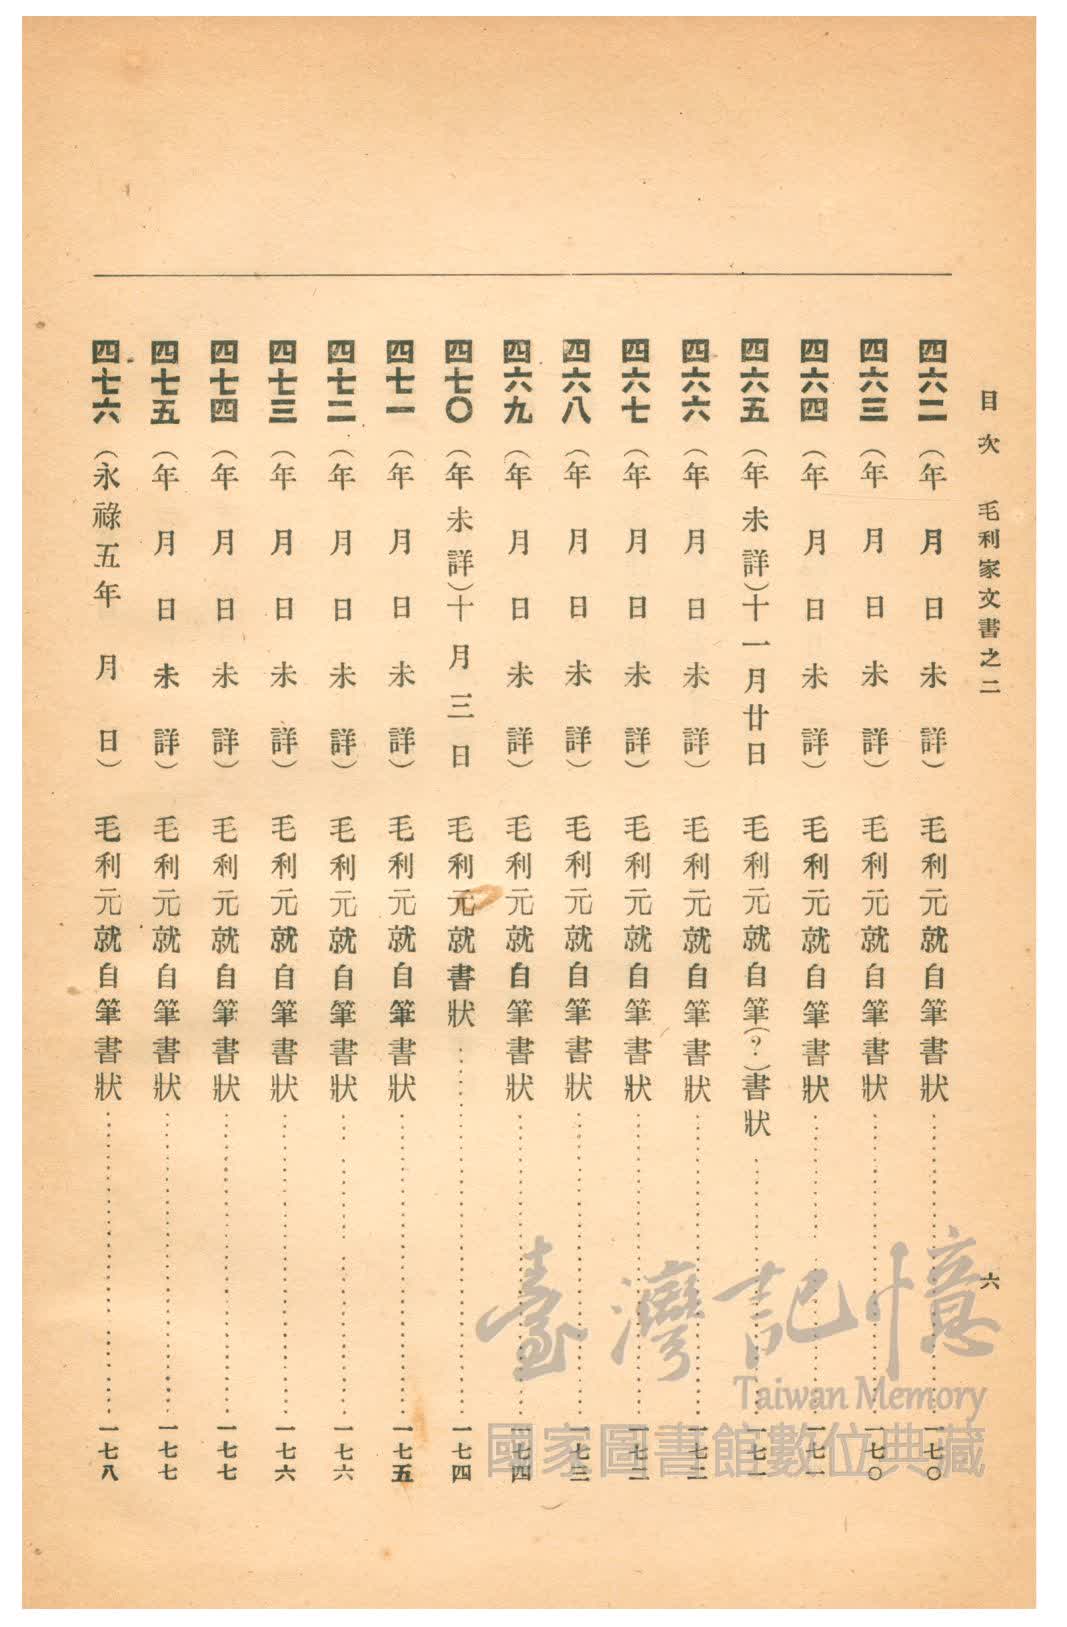 目次　毛利家文書之二　六
四六二（年月日未詳）毛利元就自筆書狀……一七〇
四六三（年月日未詳）毛利元就自筆書狀……一七〇
四六四（年月日未詳）毛利元就自筆書狀……一七一
四六五（年未詳）十一月廿日　毛利元就自筆（？）書狀……一七一
四六六（年月日未詳）毛利元就自筆書狀……一七二
四六七（年月日未詳）毛利元就自筆書狀……一七二
四六八（年月日未詳）毛利元就自筆書狀……一七三
四六九（年月日未詳）毛利元就自筆書狀……一七四
四七〇（年未詳）十月三日　毛利元就書狀……一七四
四七一（年月日未詳）毛利元就自筆書狀……一七五
四七二（年月日未詳）毛利元就自筆書狀……一七六
四七三（年月日未詳）毛利元就自筆書狀……一七六
四七四（年月日未詳）毛利元就自筆書狀……一七七
四七五（年月日未詳）毛利元就自筆書狀……一七七
四七六（永祿五年　月　日）毛利元就自筆書狀……一七八
臺灣記憶
Taiwan Memory
國家圖書館數位典藏